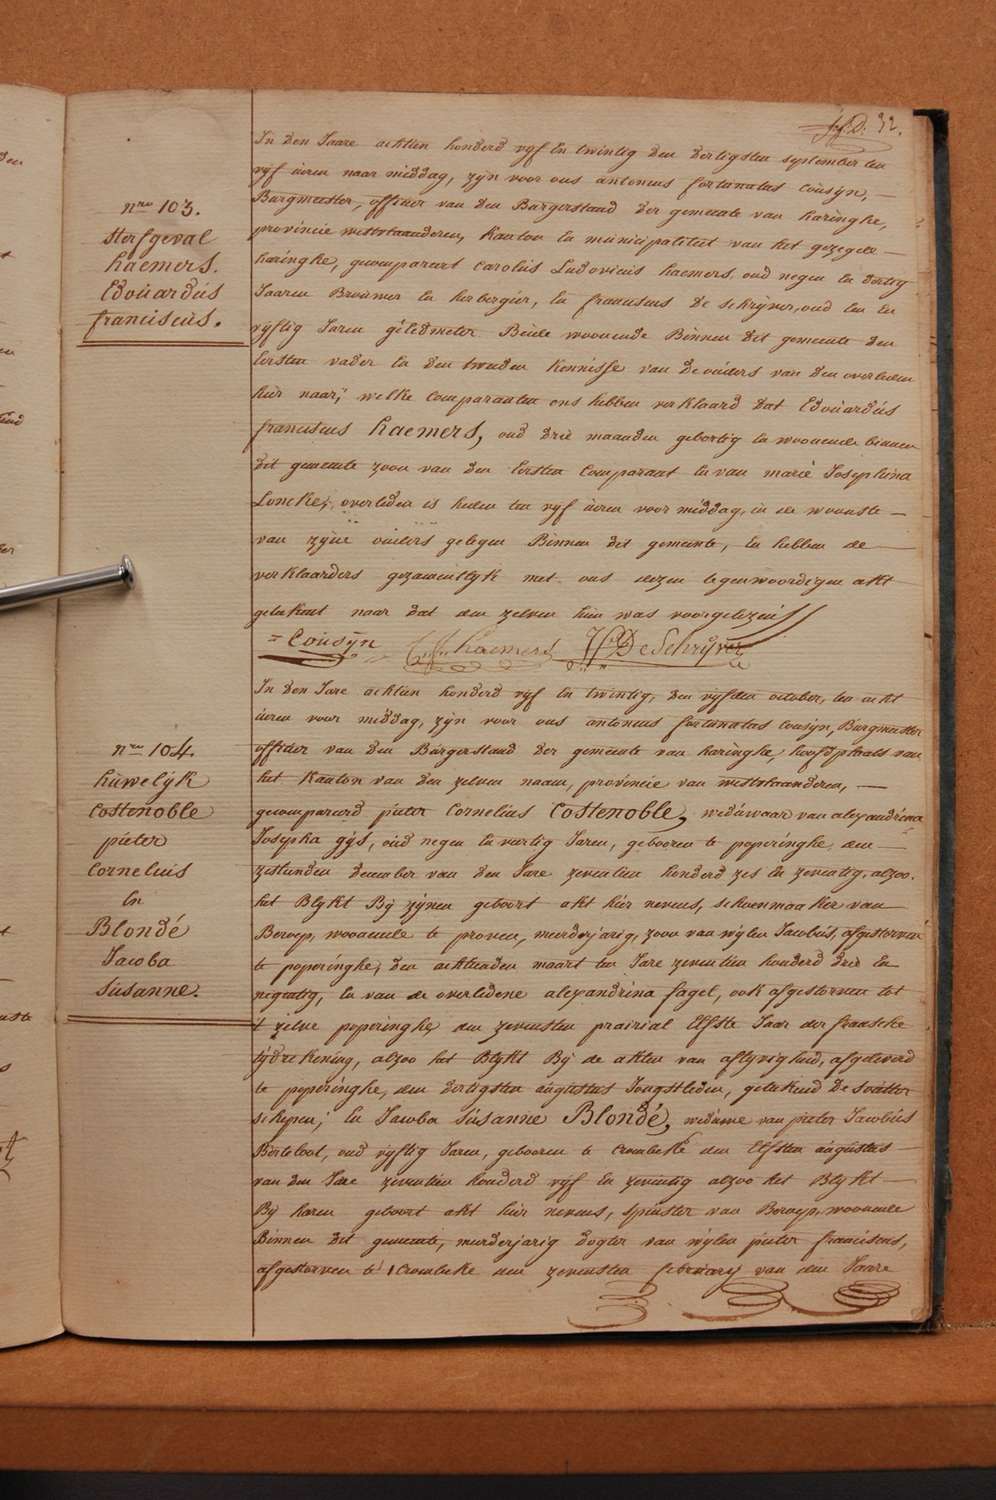 32.
nro 103.
sterfgeval
haemers.
Edoùardùs
franciscùs.
In den Jaare achtien honderd vyf En twintig den dertigsten september ten
vyf ùeren naar middag, zyn voor ons antonius fortunatus Coùsyn, —
Burgmeester, officier van den Burgerstand der gemeente van haringhe,
provincie westvlaanderen, Kanton En municipaliteit van het gezegde —
haringhe, gecompareert Carolùs Ludovicùs haemers, oud negen En dertig
Jaaren Broùwer En herbergier, En franciscùs De schryver, oud Een En
vyftig Jaren gelùdmeter Beide woonende Binnen dit gemeente den
Eersten vader En den tweeden Kennisse van de ouders van den overleden
hier naar; welke Comparanten ons hebben verklaard dat Edoùardùs
franciscùs haemers, oud drie maanden gebortig En woonende binnen
dit gemeente zoon van den Eersten Comparant En van marie Josephina
Loncke; overleden is heden ten vyf ùeren voor middag, in de woonste —
van zyne ouders gelegen Binnen dit gemeente, En hebben de —
verklaarders gezamentlyk met ons dezen tegenwoordigen akt
geteekent naar dat den zelven hun was voorgelezen
= Coùsyn haemers De Schryver
nro 104.
hùwelyk
Costenoble
pieter
Cornelius
En
Blondé
Jacoba
Sùsanne.
In den Jare achtien honderd vyf En twintig, den vyfden october, ten acht
ùeren voor middag, zyn voor ons antonius fortunatus Cousyn, Burgmeester
officier van den Burgerstand der gemeente van haringhe, hoofdplaats van
het Kanton van den zelven naam, provincie van westvlaanderen, —
gecompareerd pieter Cornelius Costenoble, wedùwaar van alexandrina
Josepha gys, oud negen En veertig Jaren, gebooren te poperinghe den —
zestienden december van den Jare zeventien honderd zes En zeventig, alzoo
het Blykt By zynen geboort akt hier nevens, schoenmaaker van
Beroep, woonende te proven, meerderjarig, zoon van wylen Jacobùs, afgestorven
te poperinghe, den achtienden maart ten Jare zeventien honderd drie En
negentig, En van de overledene alexandrina fagel, ook afgestorven tot
t zelve poperinghe den zevensten prairial Elfste Jaar der fransche
tydrekening, alzoo het Blykt By de akten van aflyvigheid, afgeleverd
te poperinghe, den dertigsten aùgùstùs Jongstleden, geteekend De
schepen; En Jacoba Sùsanne Blondé, wedùwe van pieter Jacobùs
Berteloot, oud vyftig Jaren, gebooren te Crombeke den Elfsten aùgùstùs —
van den Jare zeventien honderd vyf En zeventig alzoo het Blykt —
By haren geboort akt hier nevens, spinster van Beroep, woonende
Binnen dit gemeente, meerderjarig dogter van wylen pieter franciscùs,
afgestorven te Crombeke den zevensten febrùary van den Jaare